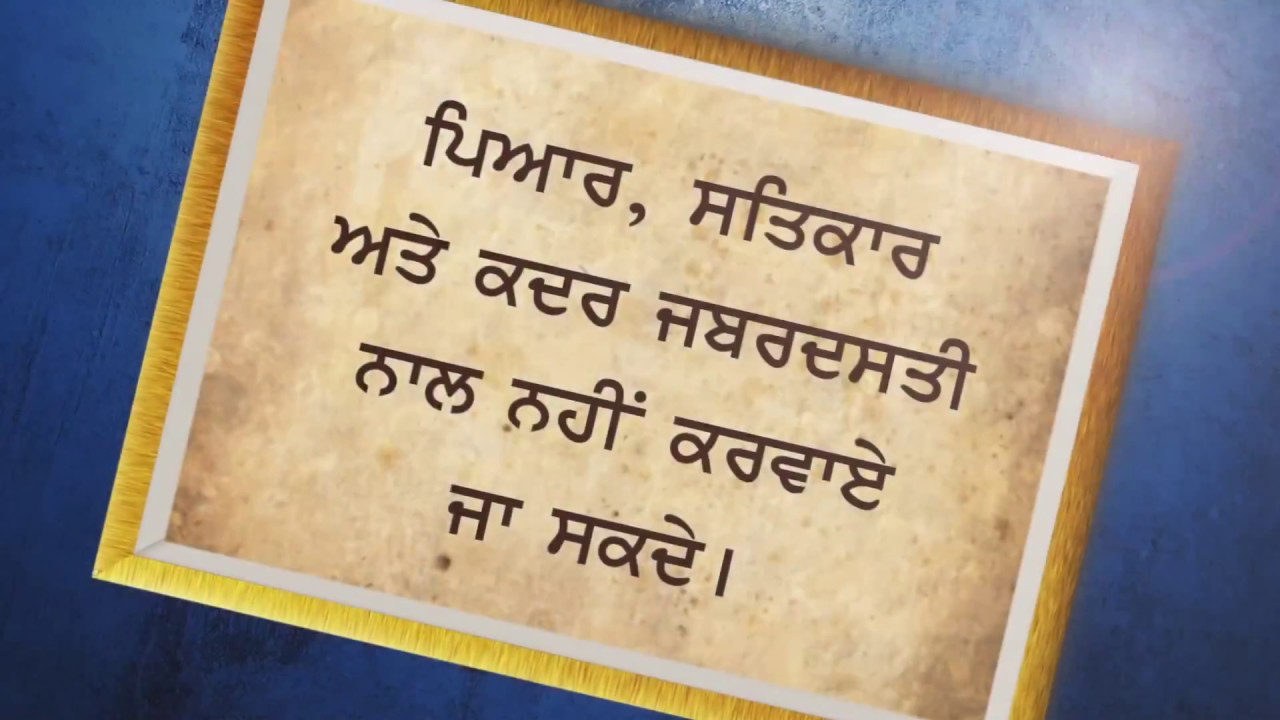 ਪਿਆਰ, ਸਤਿਕਾਰ
ਅਤੇ ਕਦਰ ਜਬਰਦਸਤੀ
ਨਾਲ ਨਹੀਂ ਕਰਵਾਏ
ਜਾ ਸਕਦੇ।